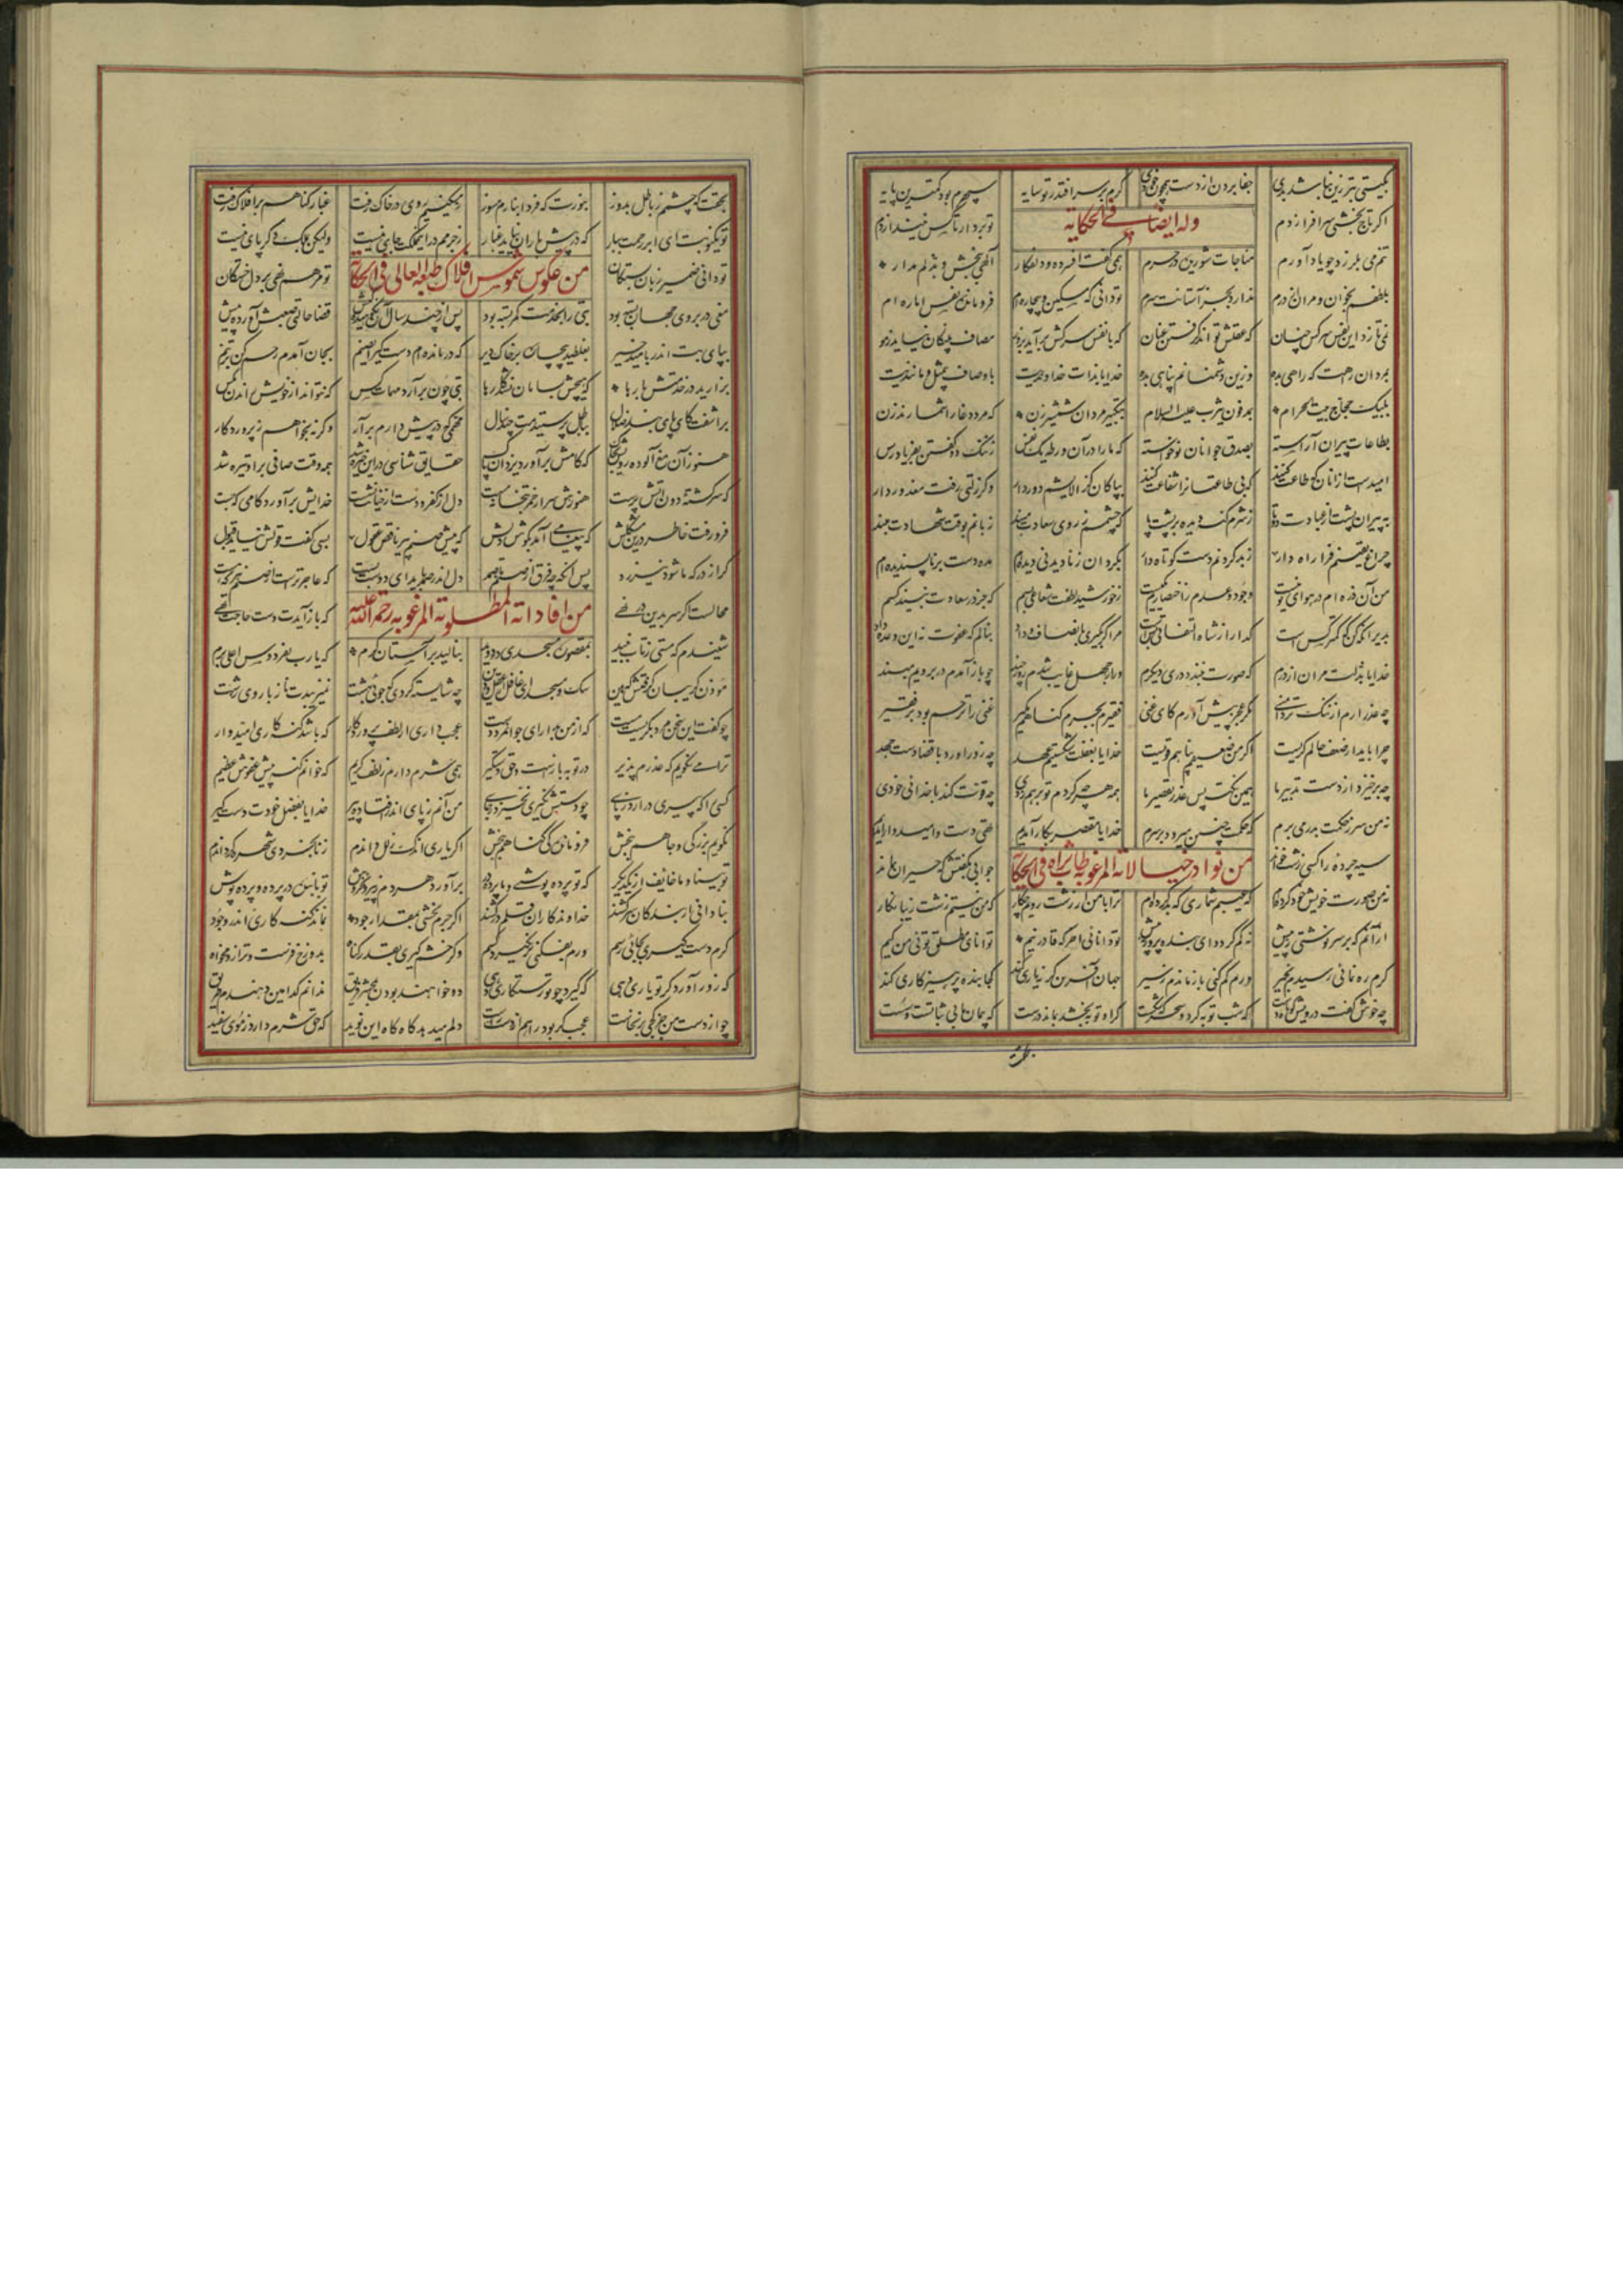 بگیتی بتر زین نباشد بدی جفا بردن از دست همچون خودی گرم بر سر افتد ز تو سایه سپهرم بود کمترین پایه
اگر تاج بخشی سر افرازدم وله ایضا فی الحکایه تو بردار تا کس نیندازدم
تنم می بلرزد چو یاد آورم مناجات شوریده در حرم همی گفت افسرده و دلفگار الهی ببخش و بذلم مدار
بلطفم بخوان و مران از درم ندارد بجز آستانت سرم تو دانی که مسکین و بیچاره ام فرومانده نفس اماره ام
نمی تازد این نفس سرکش چنان که عقلش تواند گرفتن عنان که با نفس سرکش برآید بزور مصاف پلنگان نیاید ز مور
بمردان راهت که راهی بده وزین دشمنانم پناهی بده خدایا بذات خداوندیت باوصاف بی مثل و مانندیت
بلبیک حجاج بیت الحرام بمدفون یثرب علیه السلام بتکبیر مردان شمشیر زن که مرد دغا را شمارند زن
بطاعات پیران آراسته بصدق جوانان نوخاسته که ما را در آن ورطه یک نفس ز ننگ دو گفتن بفریاد رس
امیدست از آنان که طاعت کنند که بی طاعتانرا شفاعت کنند بپاکان کز الایشم دور دار وگر زلتی رفت معذور دار
به پیران پشت از عبادت دوتا ز شرم گنه دیده بر پشت پا که چشمم ز روی سعادت مبند زبانم بوقت شهادت مبند
چراغ یقینم فرا راه دار ز بد کردنم دست کوتاه دار بگردان ز نادیدنی دیده ام مده دست بر ناپسندیده ام
من آن ذره ام در هوای تو نیست وجود و عدم یکیست ز خورشید لطفت شعاعی بسم که جز در سعادت نبیند کسم
بدیرا نگه کن که کمتر کس است گدا را ز شاه التفاتی بس است مرا گر بگیری بانصاف و داد بنالم که عفوت نه این وعده داد
خدایا بذلت مران از درم که صورت نبندد دری دیگرم ور از جهل غایب شدم روز چند چو باز آمدم در برویم مبند
چه عذر آرم از ننگ تردامنی مگر عجز پیش آورم کای غنی فقیرم بجرم گناهم مگیر غنی را ترحم بود بر فقیر
چرا باید از ضعف حالم گریست اگر من ضعیفم پناهم قویست خدایا بغفلت شکستیم عهد چه زور آورد با قضا دست جهد
چه برخیزد از دست تدبیر ما همین نکته بس عذر تقصیر ما همه هرچه کردم تو بر هم زدی چه قوت کند با خدائی خودی
نه من سر ز حکمت بدر می برم که حکمت چنین میرود بر سرم خدایا مقصر بکار آمدیم تهی دست و امیدوار آمدیم
سیه چرده را کسی زشت خواند من نوادر خیالاته المرغوبه طاب ثراه فی الحکایة جوابی بگفتش که حیران بماند
نه من صورت خویش خود کرده ام که عیبم شماری که بد کرده ام ترا با من ار زشت رویم چکار که من نیستم زشت زیبا نگار
از آنم که بر سر نوشتی ز پیش نه کم گردد ای بنده پرور نه بیش تو دانائی آخر که قادر نیم توانای مطلق توئی من کیم
گرم ره نمائی رسیدم بخیر ورم گم کنی باز ماندم ز سیر جهان آفرین گر نه یاری کند کجا بنده پرهیزکاری کند
چه خوش گفت درویش کوتاه دست که شب توبه کرد و سحرگه شکست گر او توبه بخشد بماند درست که پیمان ما بی ثباتست و سست
بحقت
بحقت که چشمم ز باطل بدوز بنورت که فردا بنارم مسوز ز مسکینیم روی در خاک رفت غبار گناهم بر افلاک رفت
تو یک نوبت ای ابر رحمت ببار که در پیش باران نپاید غبار ز جرمم درین مملکت جای نیست ولیکن بملک دگر پای نیست
تو دانی ضمیر زبان بستگان من عکوس شموس افلاک طبعه العالی فی الحکایة تو مرهم نهی بر دل خستگان
مغی در بروی جهان بسته بود بتی را بخدمت کمر بسته بود پس از چند سال آن نکوهیده کیش قضا حالتی صعبش آورد پیش
بپای بت اندر بامید خیر بغلطید بیچاره بر خاک دیر که درمانده ام دست گیر ای صنم بجان آمدم رحم کن بر تنم
بزارید در خدمتش بارها که هیچش بسامان نشد کارها بتی چون برآرد مهمات کس که نتواند از خویش راندن مگس
برآشفت کای پای بند ضلال بباطل پرستیدمت چند سال مهمی که در پیش دارم برآر وگرنه بخواهم ز پروردگار
هنوز از آن مغ آلوده رویش بخاک که کامش برآورد یزدان پاک حقایق شناسی درین خیره شد همه وقت صافی برو تیره شد
که سرگشته دون آتش پرست هنوزش سر از خمر بتخانه مست دل از کفر و دست از خیانت نشست خدایش برآورد کامی که جست
فرو رفت خاطر درین مشکلش که پیغامی آمد بگوش دلش که پیش صنم پیر ناقص عقول بسی گفت و قولش نیامد قبول
گر از درگه ما شود نیز رد پس آنگه چه فرق از صنم تا صمد دل اندر صمد باید ای دوست بست که عاجزترند از صنم هر که هست
محالست اگر سر بدین در نهی من افاداته المطلوبة المرغوبه رحمة الله علیه که باز آیدت دست حاجت تهی
شنیدم که مستی ز تاب نبید بمقصوره مسجدی در دوید بنالید بر آستان کرم که یارب بفردوس اعلی برم
مؤذن گریبان گرفتش که هین سگ و مسجد ای غافل از عقل و دین چه شایسته کردی که خواهی بهشت نمی زیبدت ناز با روی زشت
چو گفت این سخن مرد بگریست مست که از من بدار ای جوانمرد دست عجب داری از لطف پروردگار که باشد گنه کاری امیدوار
ترا می نگویم که عذرم پذیر در توبه بازست و حق دستگیر همی شرم دارم ز لطف کریم که خوانم گنه پیش عفوش عظیم
کسی را که پیری درآرد ز پای چو دستش نگیری نخیزد ز جای من آنم ز پای اندر افتاده پیر خدایا بفضل خودت دست گیر
نگویم بزرگی و جاهم ببخش فروماندگی گناهم ببخش اگر یاری اندک زلل داندم بنابخردی شهره گرداندم
تو بینا و ما خایف از یکدگر که تو پرده پوشی و ما پرده در برآورده مردم ز بیرون خروش تو با بنده در پرده و پرده پوش
بنادانی ار بندگان سرکشند خداوندگاران قلم درکشند اگر جرم بخشی بمقدار جود نماند گنه کاری اندر وجود
وگر خشم گیری بقدر گناه بدوزخ فرست و ترازو مخواه گرم دست گیری بجائی رسم ورم بفکنی برنگیرد کسم
که زور آورد گر تو یاری دهی که گیرد چو تو رستگاری دهی دو خواهند بودن بمحشر فریق ندانم کدامین دهندم طریق
عجب گر بود راهم از دست راست چو از دست من جز کجی برنخاست دلم میدهد گاه گاه این نوید که حق شرم دارد ز موی سفید